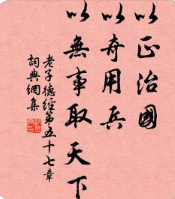 以正治國
以奇用兵
以無事取天下
老子德經第五十七章
詞典網集